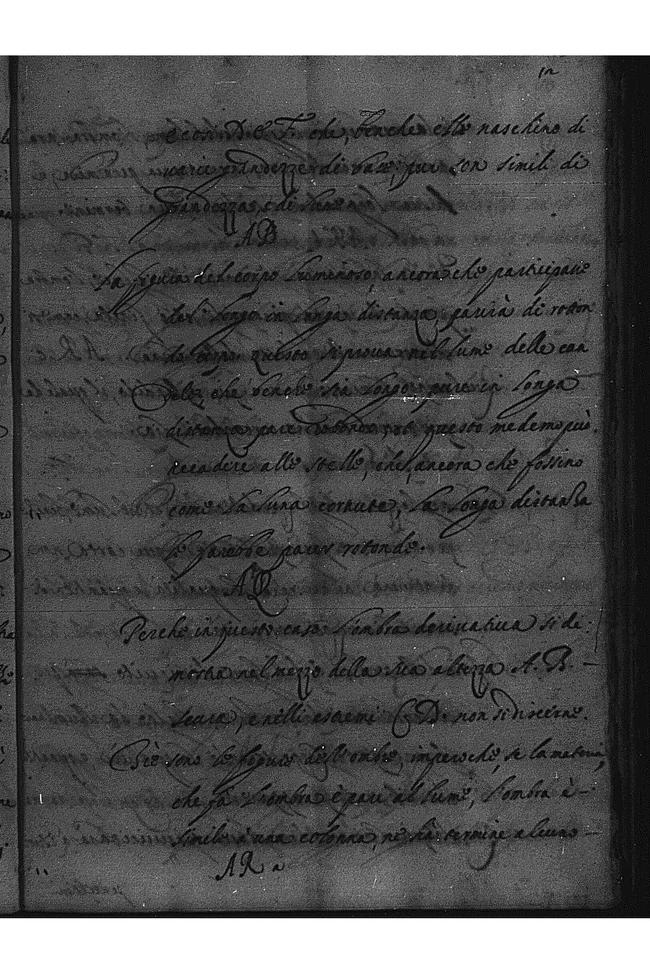 e così D. e F. che, benche esse naschino di
varie grandezze di base, pur son simili di
grandezza, e di
AB
La figura del corpo Luminoso, ancora che participasse
del Longo in Longa distanza parirà di roton
do corpo questo si prova nel lume delle can
dele, che benche sia Longo, pure in Longa
distanza pare rotondo, et questo medemo può
accadere alle stelle, che, ancora che fossino
come la Luna cornute, La Longa distanza
le farebbe parer rotonde.
AR
Perche in questo caso L'ombra derivativa si de:
mostra nel mezzo della sua altezza A. B. –
scura, e nelli estremi C D. non si discerne.
Trè sono le figure dell'ombre, imperoche, se la materia,
che fà L'ombra è pare al lume, L'ombra è –
simile à una colonna, ne hà termine alcuno –
AR